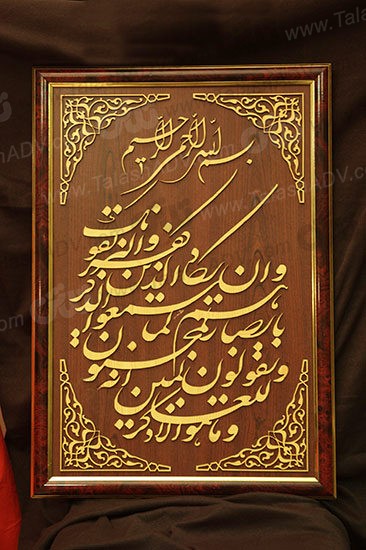 بسم الله الرحمن الرحیم
وان یکاد الذین کفروا لیزلقونک
بابصارهم لما سمعوا الذکر
ویقولون انه لمجنون
وما هو الا ذکر للعالمین
www.TalashADV.com